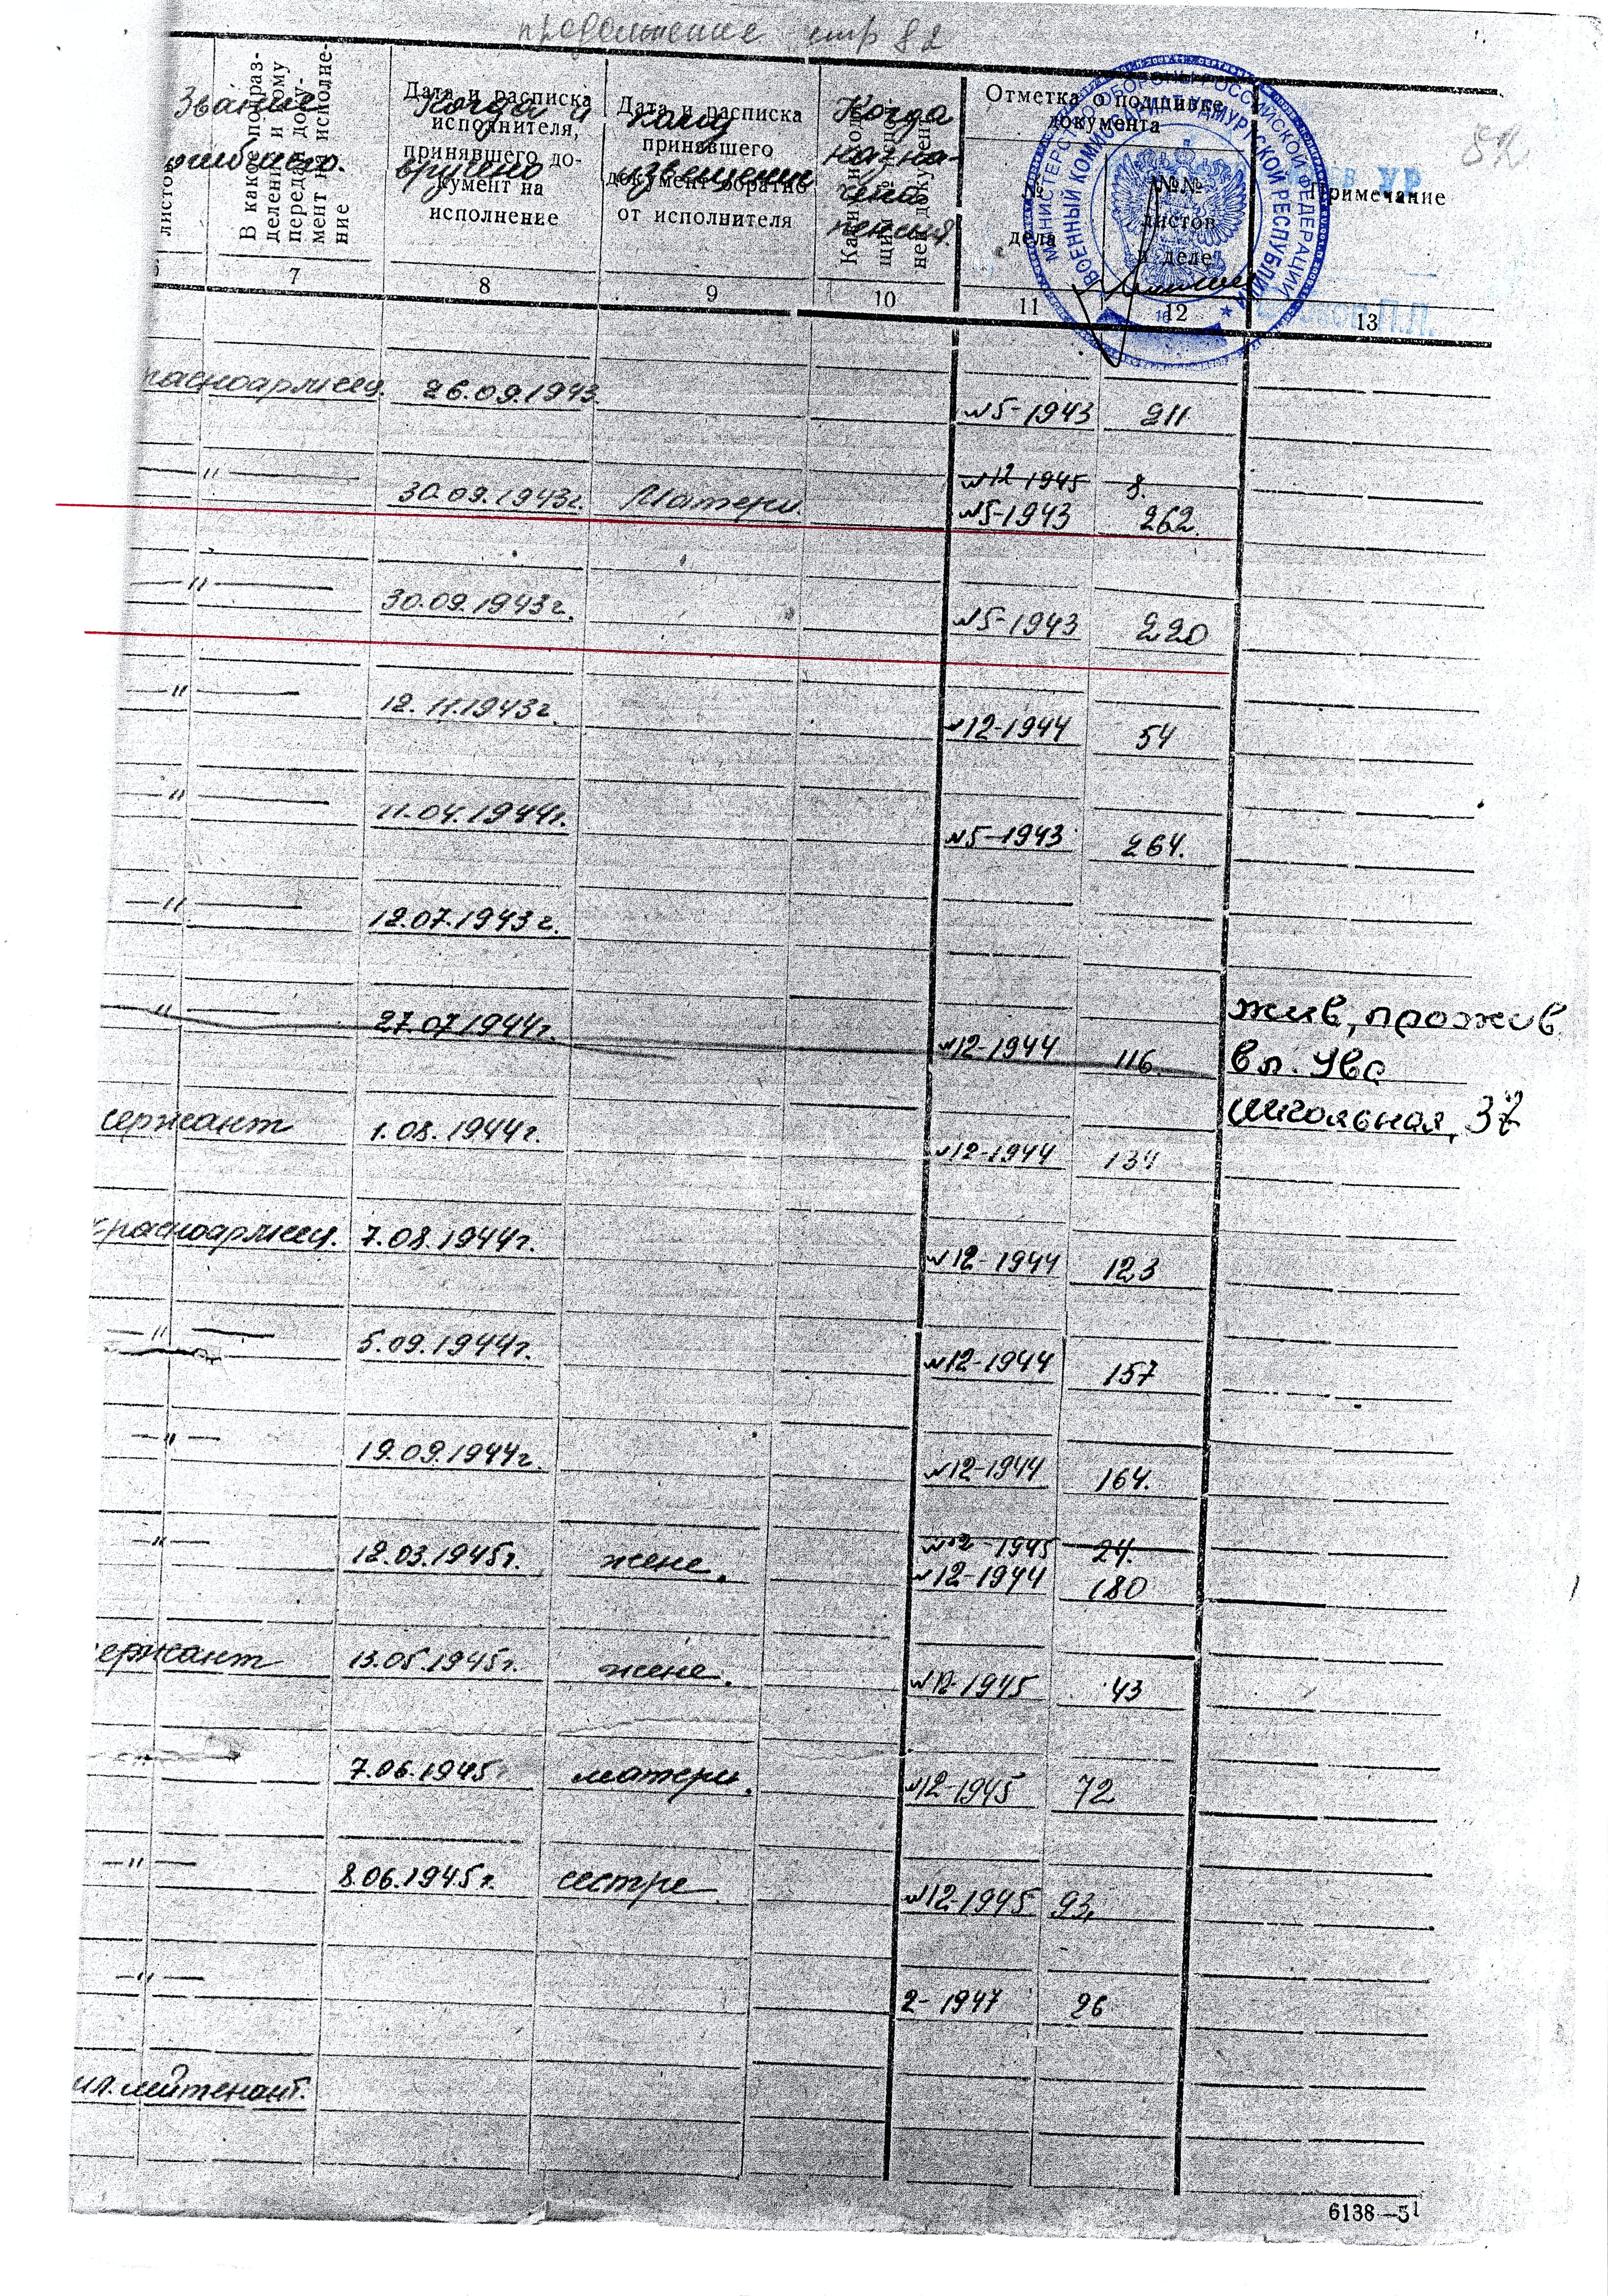 продолжение стр 82
82
Звание погибшего.
Когда и вручено
Кому извещение
Когда назна-
чена
пенсия.
листов
В какое подраз-
деление и кому
передан доку-
мент для исполне-
ние
Дата и расписка
исполнителя,
принявшего до-
кумент на
исполнение
Дата и расписка
принявшего
документ обратно
от исполнителя
Отметка о подшивке
документа
№
дела
№№
листов
в деле
Примечание
МИНИСТЕРСТВО ОБОРОНЫ РОССИЙСКОЙ ФЕДЕРАЦИИ
ВОЕННЫЙ КОМИССАРИАТ УДМУРТСКОЙ РЕСПУБЛИКИ
УР
7 8 9 10 11 12 13
расноармеец. 26.09.1943. №5-1943 211
—"— №12-1945 8.
30.09.1943г. Матери. №5-1943 262.
—"— 30.09.1943г. №5-1943 220
—"— 12.11.1943г. №12-1944 54
—"— 11.04.1944г. №5-1943 264.
—"— 12.07.1943г.
—"— 27.07.1944г. №12-1944 116. жив, прожив.
в п. Ува
Школьная, 37
сержант 1.08.1944г. №12-1944 134
красноармеец. 7.08.1944г. №12-1944 123
—"— 5.09.1944г. №12-1944 157
—"— 19.09.1944г. №12-1944 164.
—"— №12-1945 24.
12.03.1945г. жене. №12-1944 180
сержант 13.05.1945г. жене. №12-1945 43
—"— 7.06.1945г. матери. №12-1945 72
—"— 8.06.1945г. сестре №12-1945 93.
—"— 2-1947 26
мл. лейтенант.
6138—5